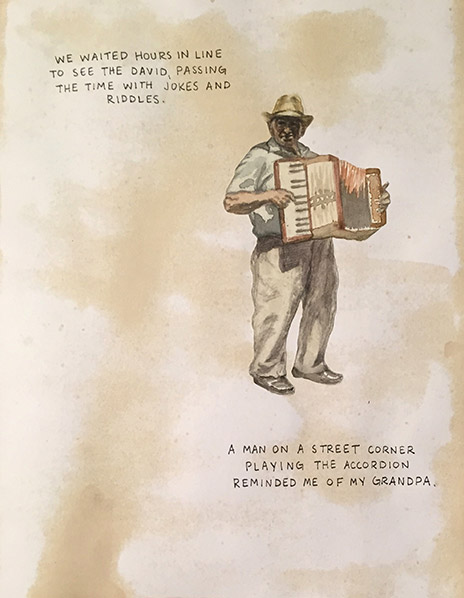 WE WAITED HOURS IN LINE
TO SEE THE DAVID, PASSING
THE TIME WITH JOKES AND
RIDDLES.
A MAN ON A STREET CORNER
PLAYING THE ACCORDION
REMINDED ME OF MY GRANDPA.